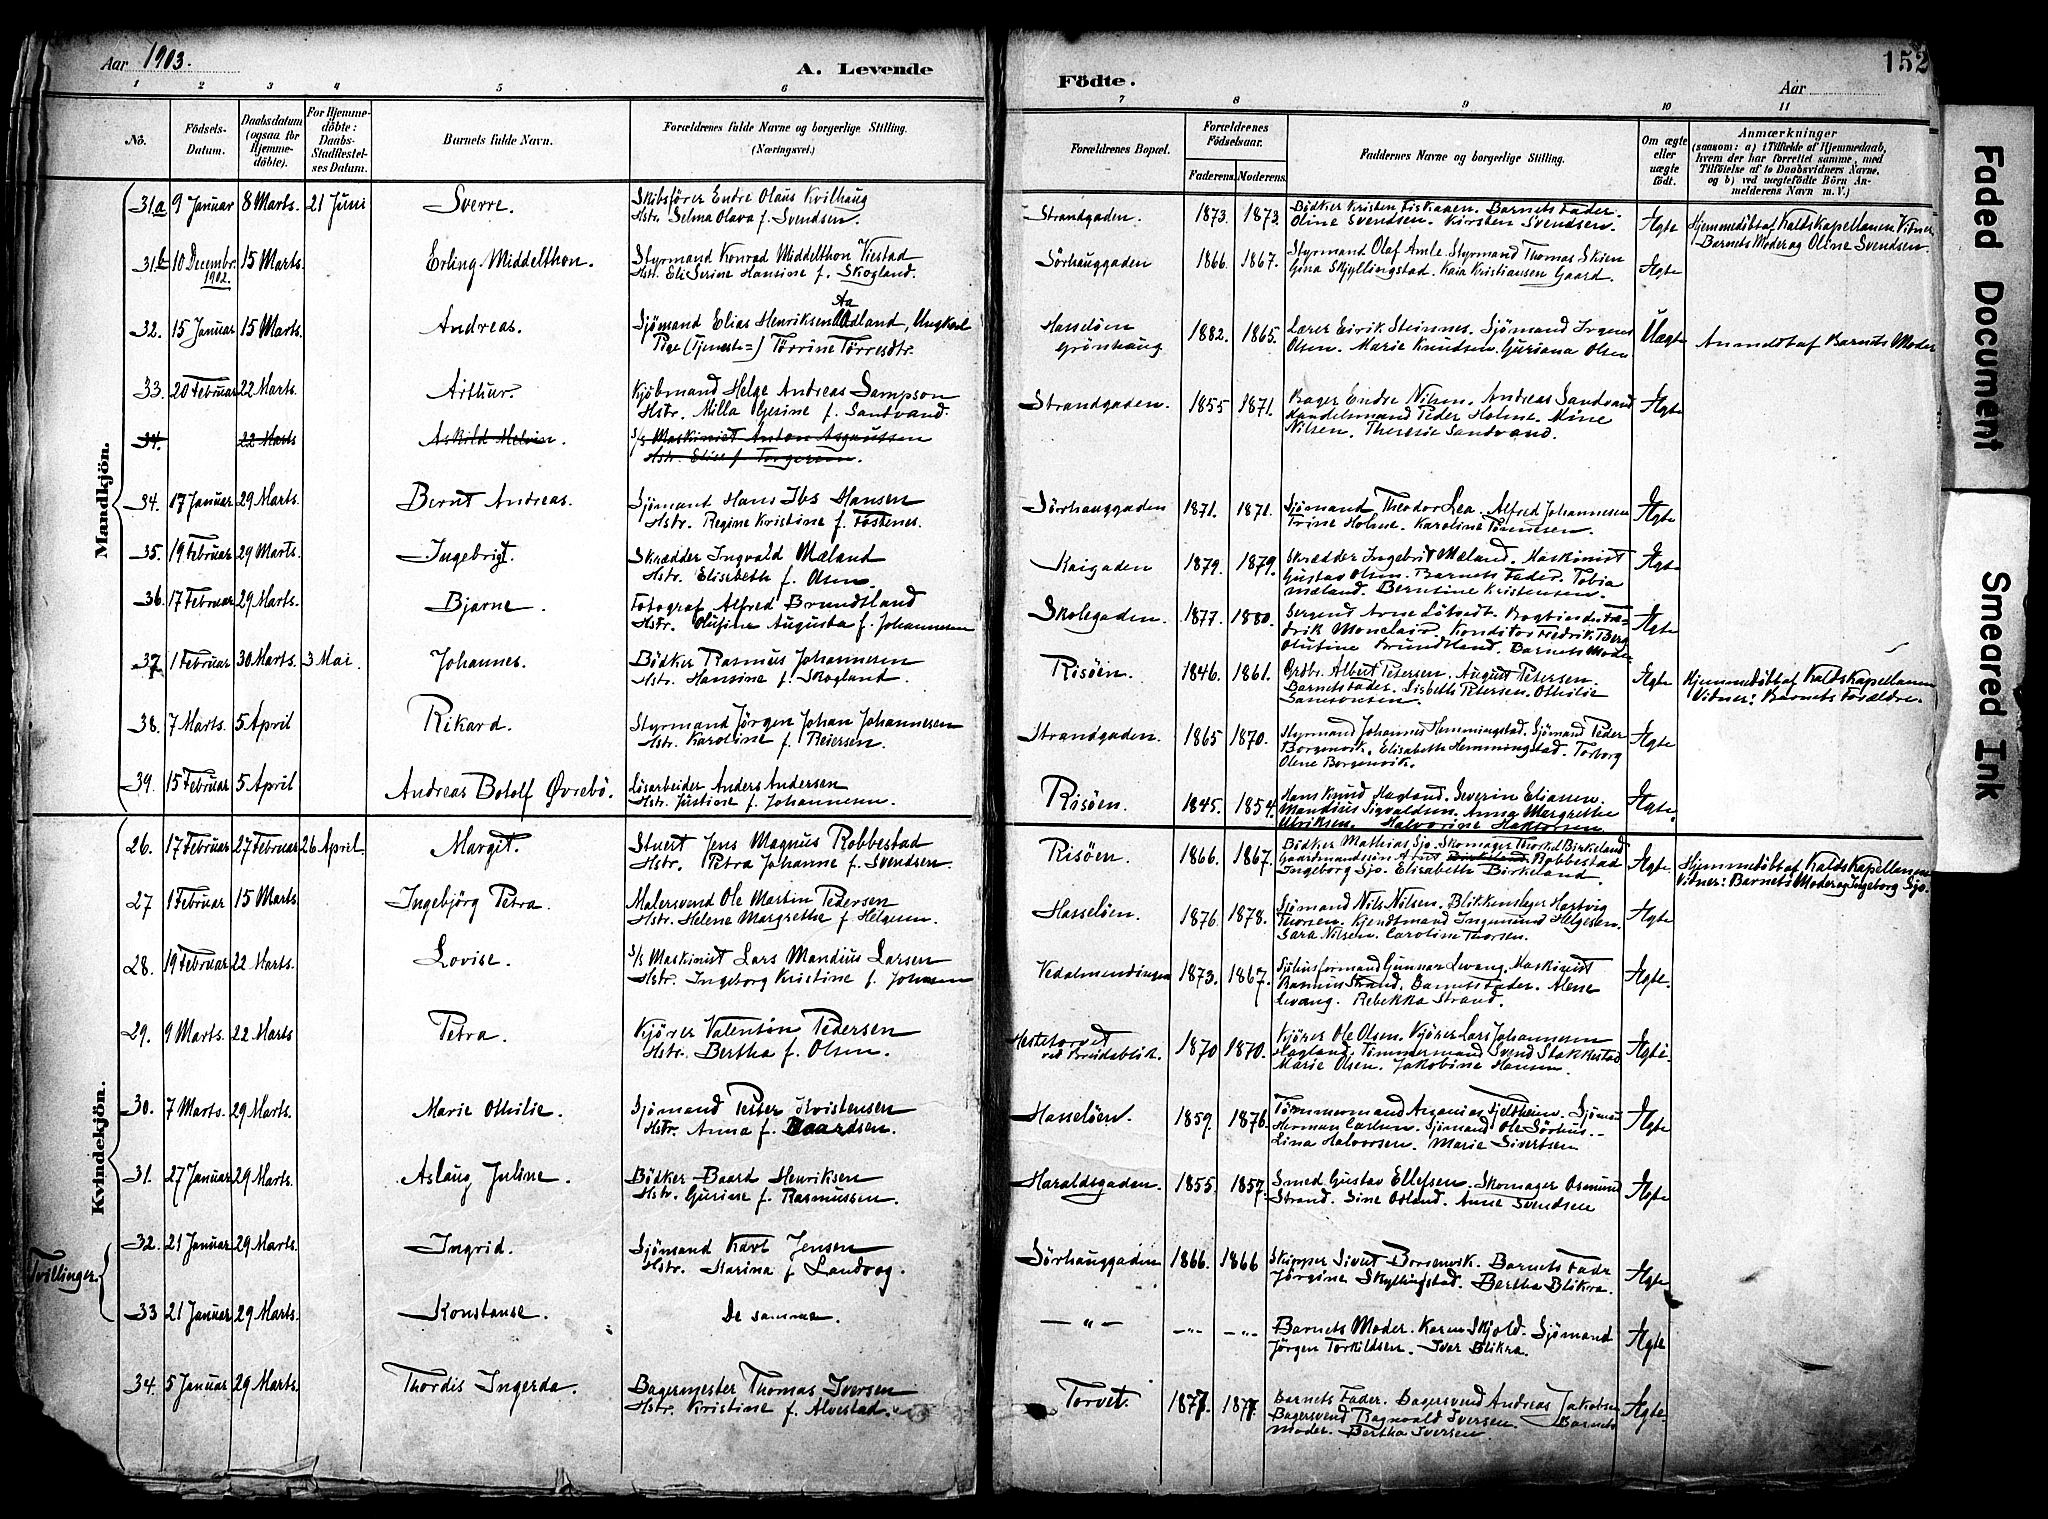 Aar 1903.
A. Levende
Födte.
Aar
152
1 2 3 4 5 6 7 8 9 10 11
No.
Födsels-
Datum.
Daabsdatum
(ogsaa for
Hjemme-
döbte).
For Hjemme-
döbte:
Daabs-
Stadfæstel-
ses Datum.
Barnets fulde Navn.
Forældrenes fulde Navne og borgerlige Stilling.
(Næringsvei.)
Forældrenes Bopæl.
Forældrenes
Födselsaar.
Faderens. Moderens.
Faddernes Navne og borgerlige Stilling.
Om ægte
eller
uægte
födt.
Anmærkninger
(saasom: a) i Tilfælde af Hjemmedaab,
hvem der har forrettet samme, med
Tilföielse af to Daabsvidners Navne,
og b) ved uægtefödte Börn An-
melderens Navn m. V.)
Mandkjön.
31a 9 Januar 8 Marts. 21 Juni Sverre. Skibsfører Endre Olaus Kvilhaug
Hstr. Selma Olava f. Svendsen. Strandgaden. 1873. 1873. Bödker Kristen Fiskaaen. Barnets Fader.
Oline Svendsen. Kirsten Svendsen. Ægte Hjemmedöbt af Kaldskapellanen. Vitner
Barnets Moder og Oline Svendsen.
31b 10 Decembr. 1902. 15 Marts. Erling Middelthon. Styrmand Konrad Middelthon Viestad
Hstr. Eli Serine Hansine f. Skogland. Sörhauggaden 1866. 1867. Styrmand Olaf Amle. Styrmand Thomas Skien
Gina Skjyllingstad. Kaia Kristiansen Gaard. Ægte
32. 15 Januar 15 Marts. Andreas. Sjömand Elias Henriksen Aadland, Ungkarl
Pige (Tjeneste=) Törrine Törresdtr. Hasselöen
Grönhaug 1882. 1865. Lærer Eirik Steinnes. Sjömand Ingens
Olsen. Marie Knudsen. Guriana Olsen Uægte Anmeldt af Barnets Moder
33. 20 Februar 22 Marts. Arthur. Kjöbmand Helge Andreas Sampson
Hstr. Milla Gerine f. Sandvand. Strandgaden. 1855 1871. Bager Endre Nilsen. Andreas Sandvand
Handelsmand Peder Holme. Mine
Nilsen. Therese Sandvand. Ægte
34. 22 Marts Askild Melvin. S/s Maskinist Anton Asgautsen
Hstr. Elise f. Torgersen.
34. 17 Januar 29 Marts. Bernt Andreas. Sjömand Hans Ibs Hansen
Hstr. Regine Kristine f. Fosenes. Sörhauggaden 1871. 1871. Sjømand Theodor Lea. Alfred Johannesen
Trine Holme. Karoline Tönnesen. Ægte
35. 19 Februar 29 Marts. Ingebrigt. Skrædder Ingvald Mæland
Hstr. Elisebeth f. Olsen. Kaigaden 1879. 1879. Skrædder Ingebrit Mæland. Maskinist
Gustav Olsen. Barnets Fader. Tobia
Mæland. Berntine Kristensen. Ægte
36. 17 Februar 29 Marts. Bjarne. Fotograf Alfred Brundtland
Hstr. Olufine Augusta f. Johannesen Skolegaden 1877. 1880. Sergent Arne Lötvedt. Bogbinder Fre-
drik Monclair. Konditor Fredrik Berg
Olufine Brundtland. Barnets Moder Ægte
37 1 Februar 30 Marts. 3 Mai. Johannes. Bödker Rasmus Johannesen
Hstr. Hansine f. Skogland. Risöen. 1846. 1861. Ordbr. Albert Petersen. August Petersen.
Barnets Fader. Lisbeth Petersen. Othilie
Samsonsen. Ægte Hjemmedöbt af Kaldskapellanen
Vidner: Barnets Forældre.
38. 7 Marts. 5 April Rikard. Styrmand Jörgen Johan Johannesen
Hstr. Karoline f. Reiersen. Strandgaden. 1865 1870. Styrmand Johannes Hemmingstad. Sjömand Peder
Borgenvik. Elisabeth Hemmingstad. Torborg
Olene Borgenvik. Ægte
39. 15 Februar 5 April Andreas Botolf Øvrebö. Lösarbeider Anders Andersen
Hstr. Justine f. Johannesen. Risöen. 1845. 1854. Hans Knud Hagland. Severin Eliassen
Mandius Sigvaldsen. Anna Margrethe
Ulriksen. Halvorine Haktorsen Ægte.
Kvindekjön.
26. 17 Februar 27 Februar 26 April. Margit. Stuert Jens Magnus Robbestad
Hstr. Petra Johanne f. Svendsen. Risöen. 1866. 1867. Bödker Mathias Sjo. Skomager Thorkel Birkeland
Gaardmandssön Arnt Birkeland Robbestad
Ingeborg Sjo. Elisabeth Birkeland. Ægte. Hjemmedöbt af Kaldskapellanen
Vitner: Barnets Moder og Ingeborg Sjo.
27 1 Februar 15 Marts. Ingebjörg Petra. Malersvend Ole Martin Pedersen
Hstr. Helene Margrethe f. Helgesen. Hasselöen. 1876. 1878. Sjömand Nils Nilsen. Blikkenslager Hartvig
Thorsen. Kjendtmand Ingemund Helgesen.
Sara Nilsen. Caroline Thorsen. Ægte
28. 19 Februar 22 Marts. Lovise. S/s Maskinist Lars Mandius Larsen
Hstr. Ingeborg Kristine f. Johnsen Vedalmendingen 1873. 1867. Sjöhusformand Gunnar Levang. Maskinist
Rasmus Strand. Barnets Fader. Alene
Levang. Rebekka Strand. Ægte.
29. 9 Marts. 22 Marts Petra. Kjörer Valentin Pedersen
Hstr. Bertha f. Olsen. Hestetorvet
ved Breidablik. 1870 1870. Kjörer Ole Olsen. Kjörer Lars Johannesen
Hagland. Tömmermand Svend Stakkestad
Marie Olsen. Jakobine Hansen. Ægte.
30. 7 Marts. 29 Marts. Marie Othilie. Sjömand Petter Kristensen
Hstr. Anna f. Baardsen. Hasselöen. 1859. 1876. Tömmermand Ananias Fjeldheim. Sjöman
Herman Carlsen. Sjömand Ole Sörhus.
Lina Halvorsen. Marie Sivertsen Ægte
31. 27 Januar 29 Marts. Aslaug Juline. Bödker Baard Henriksen
Hstr. Gurine f. Rasmussen. Haraldsgaden. 1855. 1857. Smed Gustav Ellefsen. Skomager Osmund
Strand. Sine Osland. Anne Svendsen Ægte
Tvillinger.
32. 21 Januar 29 Marts. Ingrid. Sjömand Karl Jensen
Hstr. Marina f Landvog. Sörhauggaden 1866. 1866 Skipper Sivert Borgenvik. Barnets Fader
Jörgine Skyllingstad. Bertha Blikra. Ægte
33 21 Januar 29 Marts. Konstanse. De samme. — " — —"— —"— Barnets Moder. Karen Skjold. Sjömand
Jörgen Torkildsen. Iver Blikra. Ægte
34. 5 Januar 29 Marts. Thordis Ingerda. Bagermester Thomas Iversen
Hstr. Kristine f. Alvestad. Torvet. 1877. 1877. Barnets Fader. Bagersvend Andreas Jakobsen
Bagersvend Ragnvald Iversen. Barnets
Moder. Bertha Iversen. Ægte
Faded Document
Smeared Ink